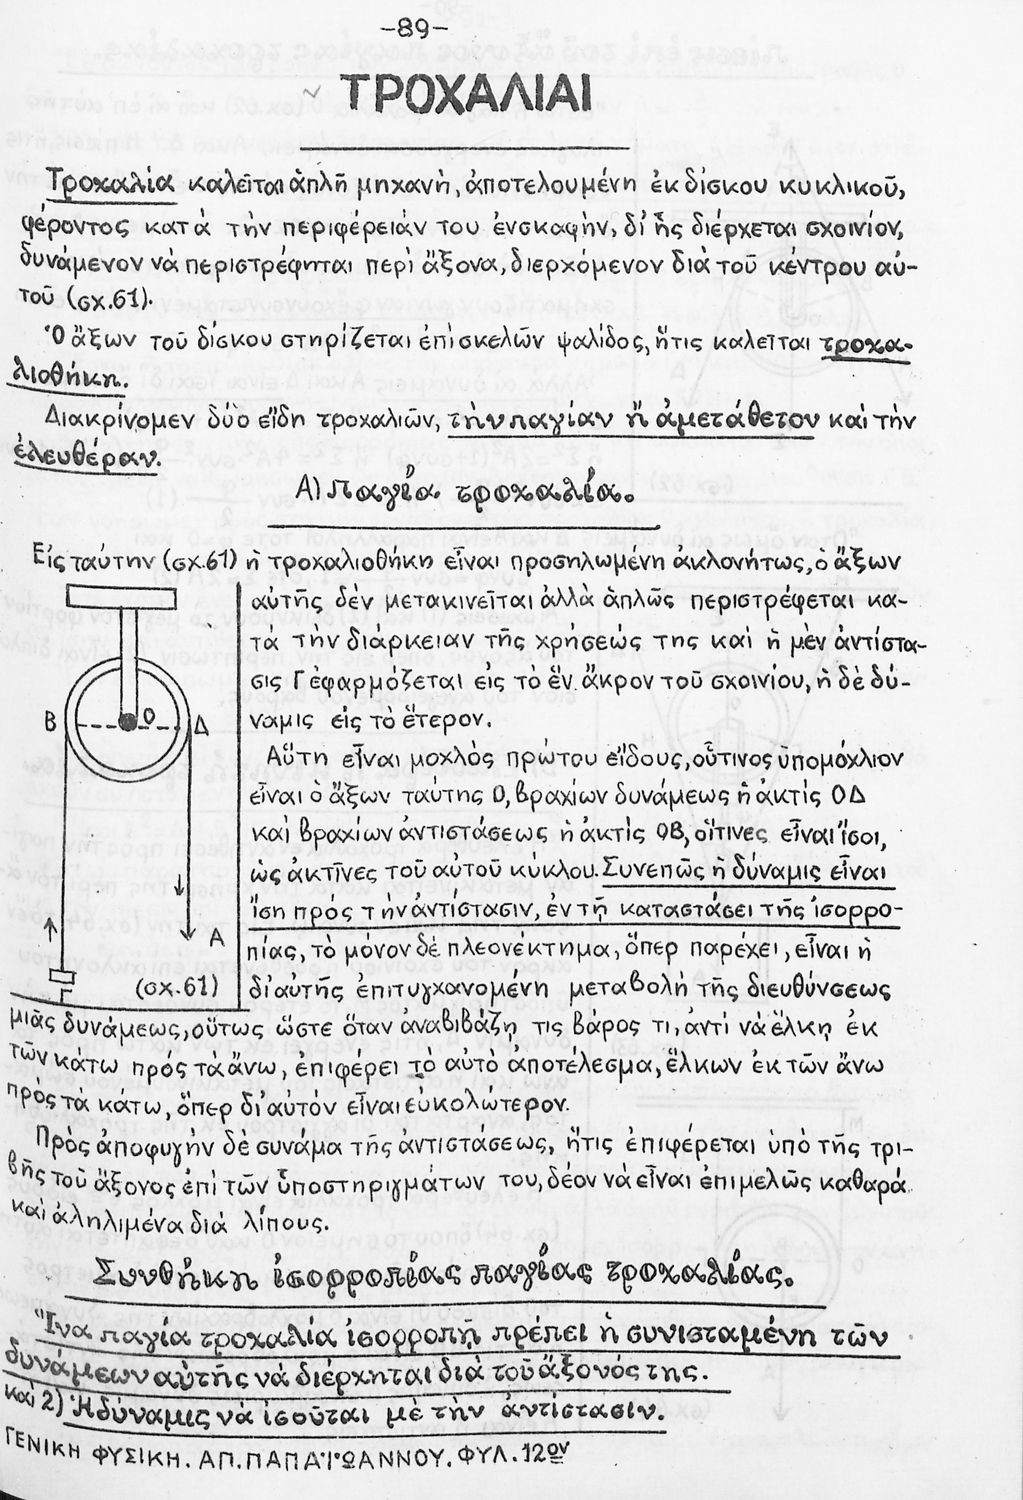 -89-
ΤΡΟΧΑΛΙΑΙ
Τροχαλία καλεῖται ἁπλῆ μηχανὴ, ἀποτελουμένη ἐκ δίσκου κυκλικοῦ,
φέροντος κατὰ τὴν περιφέρειάν του ἐνσκαφὴν, δι' ἧς διέρχεται σχοινίον,
δυνάμενον νὰ περιστρέφηται περὶ ἄξονα, διερχόμενον διὰ τοῦ κέντρου αὐ-
τοῦ (σχ.61).
Ὁ ἄξων τοῦ δίσκου στηρίζεται ἐπὶ σκελῶν ψαλίδος, ἥτις καλεῖται τροχα-
λιοθήκη.
Διακρίνομεν δύο εἴδη τροχαλιῶν, τὴν παγίαν ἢ ἀμετάθετον καὶ τὴν
ἐλευθέραν.
Α) Παγία τροχαλία.
Εἰς ταύτην (σχ.61) ἡ τροχαλιοθήκη εἶναι προσηλωμένη ἀκλονήτως, ὁ ἄξων
αὐτῆς δὲν μετακινεῖται ἀλλὰ ἁπλῶς περιστρέφεται κα-
τὰ τὴν διαρκειαν τῆς χρήσεώς της καὶ ἡ μὲν ἀντίστα-
σις Γ ἐφαρμόζεται εἰς το ἓν ἄκρον τοῦ σχοινίου, ἡ δὲ δύ-
ναμις εἰς τὸ ἕτερον.
Αὕτη εἶναι μοχλὸς πρώτου εἴδους, οὗτινος ὑπομόχλιον
εἶναι ὁ ἄξων ταύτης Ο, βραχίων δυνάμεως ἡ ἀκτὶς ΟΔ
καὶ βραχίων ἀντιστάσεως ἡ ἀκτὶς ΟΒ, οἵτινες εἶναι ἴσοι,
ὡς ἀκτῖνες τοῦ αὐτοῦ κύκλου. Συνεπῶς ἡ δύναμις εἶναι
ἴση πρὸς τὴν ἀντίστασιν, ἐν τῇ καταστάσει τῆς ἰσορρο-
πίας, τὸ μόνον δὲ πλεονέκτημα, ὅπερ παρέχει, εἶναι ἡ
δι' αὐτῆς ἐπιτυγχανομένη μεταβολὴ τῆς διευθύνσεως
Β Ο Δ
Α
Γ
(σχ.61)
μιᾶς δυνάμεως, οὕτως ὥστε ὅταν ἀναβιβάζῃ τις βάρος τι, ἀντὶ νὰ ἕλκῃ ἐκ
τῶν κάτω πρὸς τὰ ἄνω, ἐπιφέρει τὸ αὐτὸ ἀποτέλεσμα, ἕλκων ἐκ τῶν ἄνω
πρὸς τὰ κάτω, ὅπερ δι' αὐτὸν εἶναι εὐκολώτερον.
Πρὸς ἀποφυγὴν δὲ συνάμα τῆς ἀντιστάσεως, ἥτις ἐπιφέρεται ὑπὸ τῆς τρι-
βῆς τοῦ ἄξονος ἐπὶ τῶν ὑποστηριγμάτων του, δέον νὰ εἶναι ἐπιμελῶς καθαρά
καὶ ἀληλιμένα διὰ λίπους.
Συνθήκη ἰσορροπίας παγίας τροχαλίας.
Ἵνα παγία τροχαλία ἰσορροπῇ πρέπει ἡ συνισταμένη τῶν
δυνάμεων αὐτῆς νὰ διέρχηται διὰ τοῦ ἄξονός της.
καὶ 2) Ἡ δύναμις νὰ ἰσοῦται μὲ τὴν ἀντίστασιν.
ΓΕΝΙΚΗ ΦΥΣΙΚΗ. ΑΠ. ΠΑΠΑΪΩΑΝΝΟΥ. ΦΥΛ. 12ον